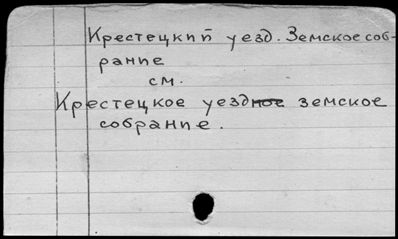 Крестецкий уезд. Земское соб-
рание
см.
Крестецкое уездное земское
собрание.